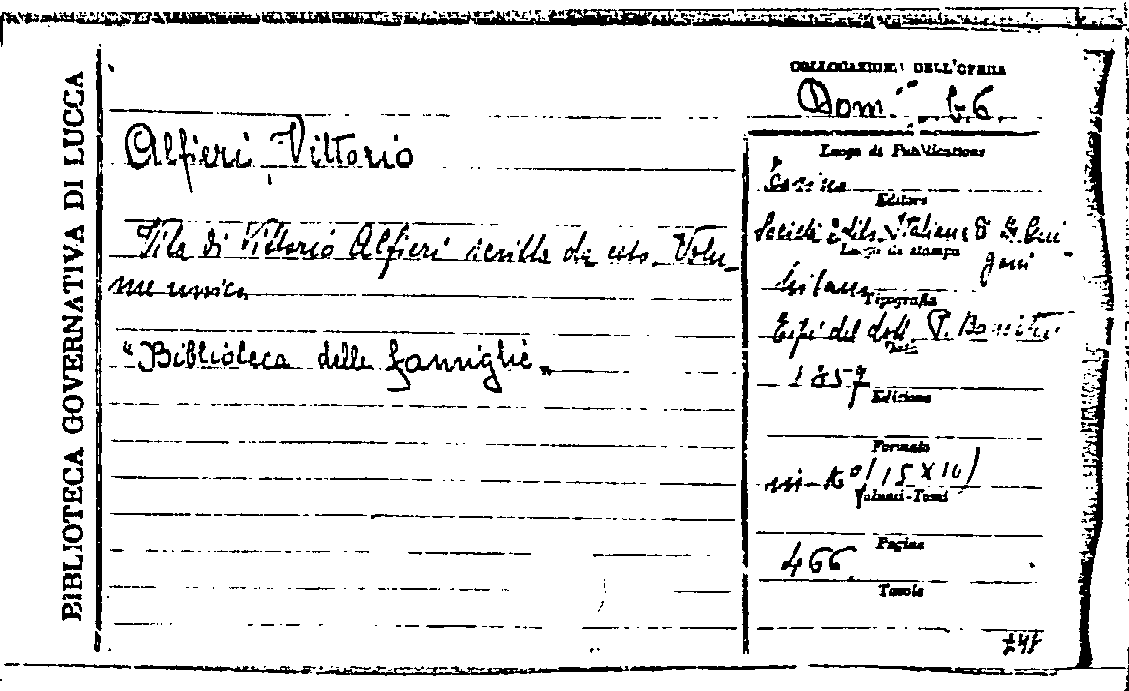 BIBLIOTECA GOVERNATIVA DI LUCCA
COLLOCAZIONE DELL'OPERA
Dom. b. 6.
Alfieri Vittorio
Vita di Vittorio Alfieri scritta da esso. Volu-
me unico
"Biblioteca delle famiglie"
Luogo di Pubblicazione
Torino
Editore
Società Edit. Italiana di M. Gui
goni
Luogo di stampa
Milano
Tipografia
Tipi del dott.
Data
1857
Edizione
Formato
in- (15 X 10)
Volumi-Tomi
Pagine
466
Tavole